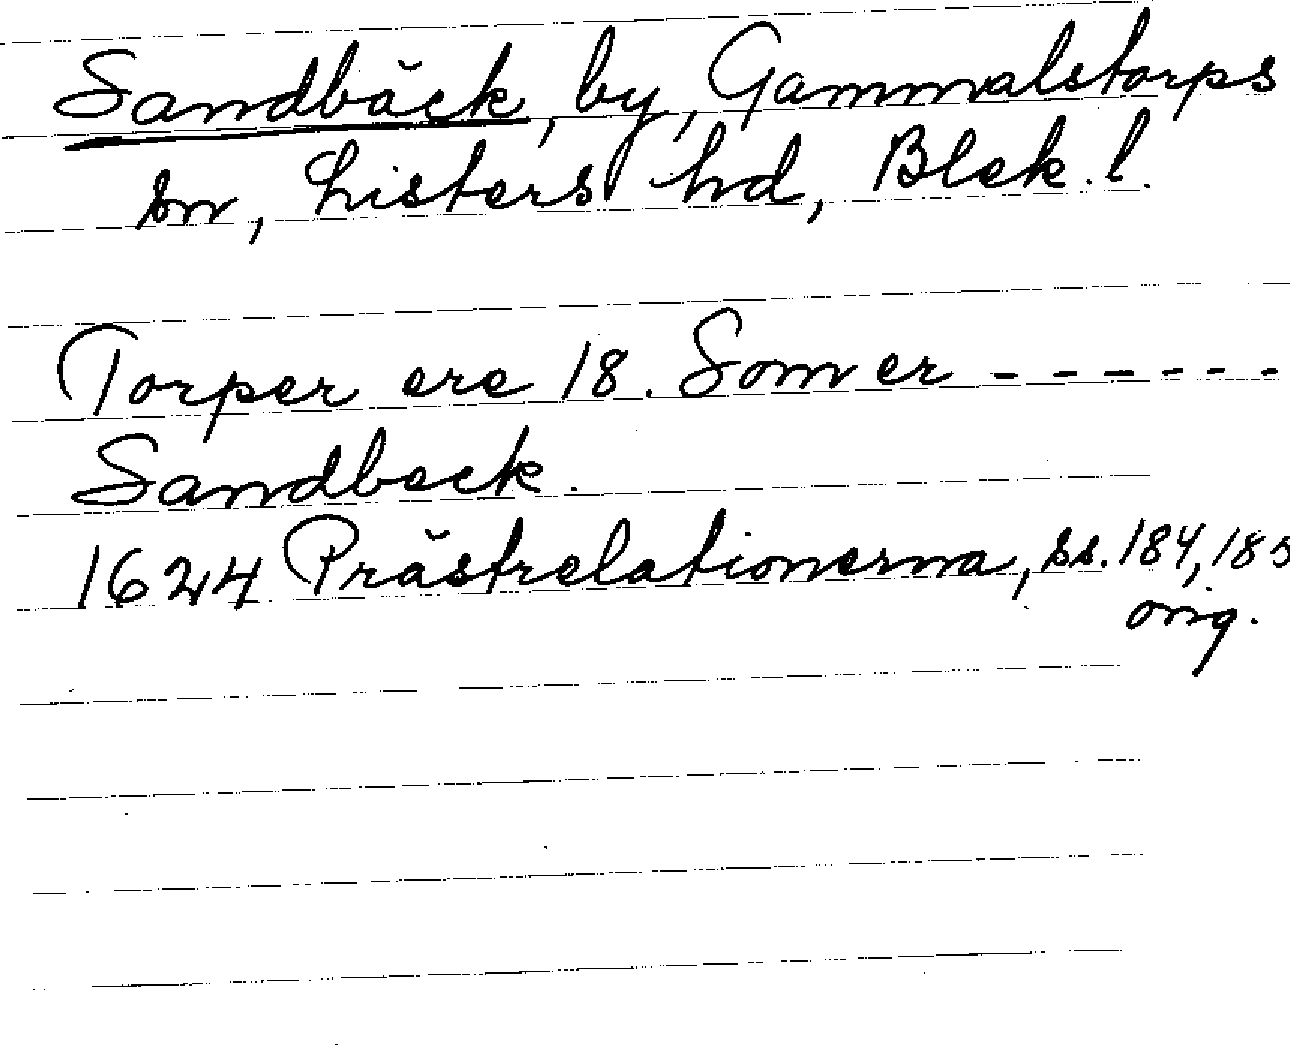 Sandbäck, by, Gammalstorps
sn, Listers hd, Blek. l.
Torper ere 18. Som er - - - - - -
Sandbeck.
1624 Prästrelationerna, ss. 184, 185
orig.